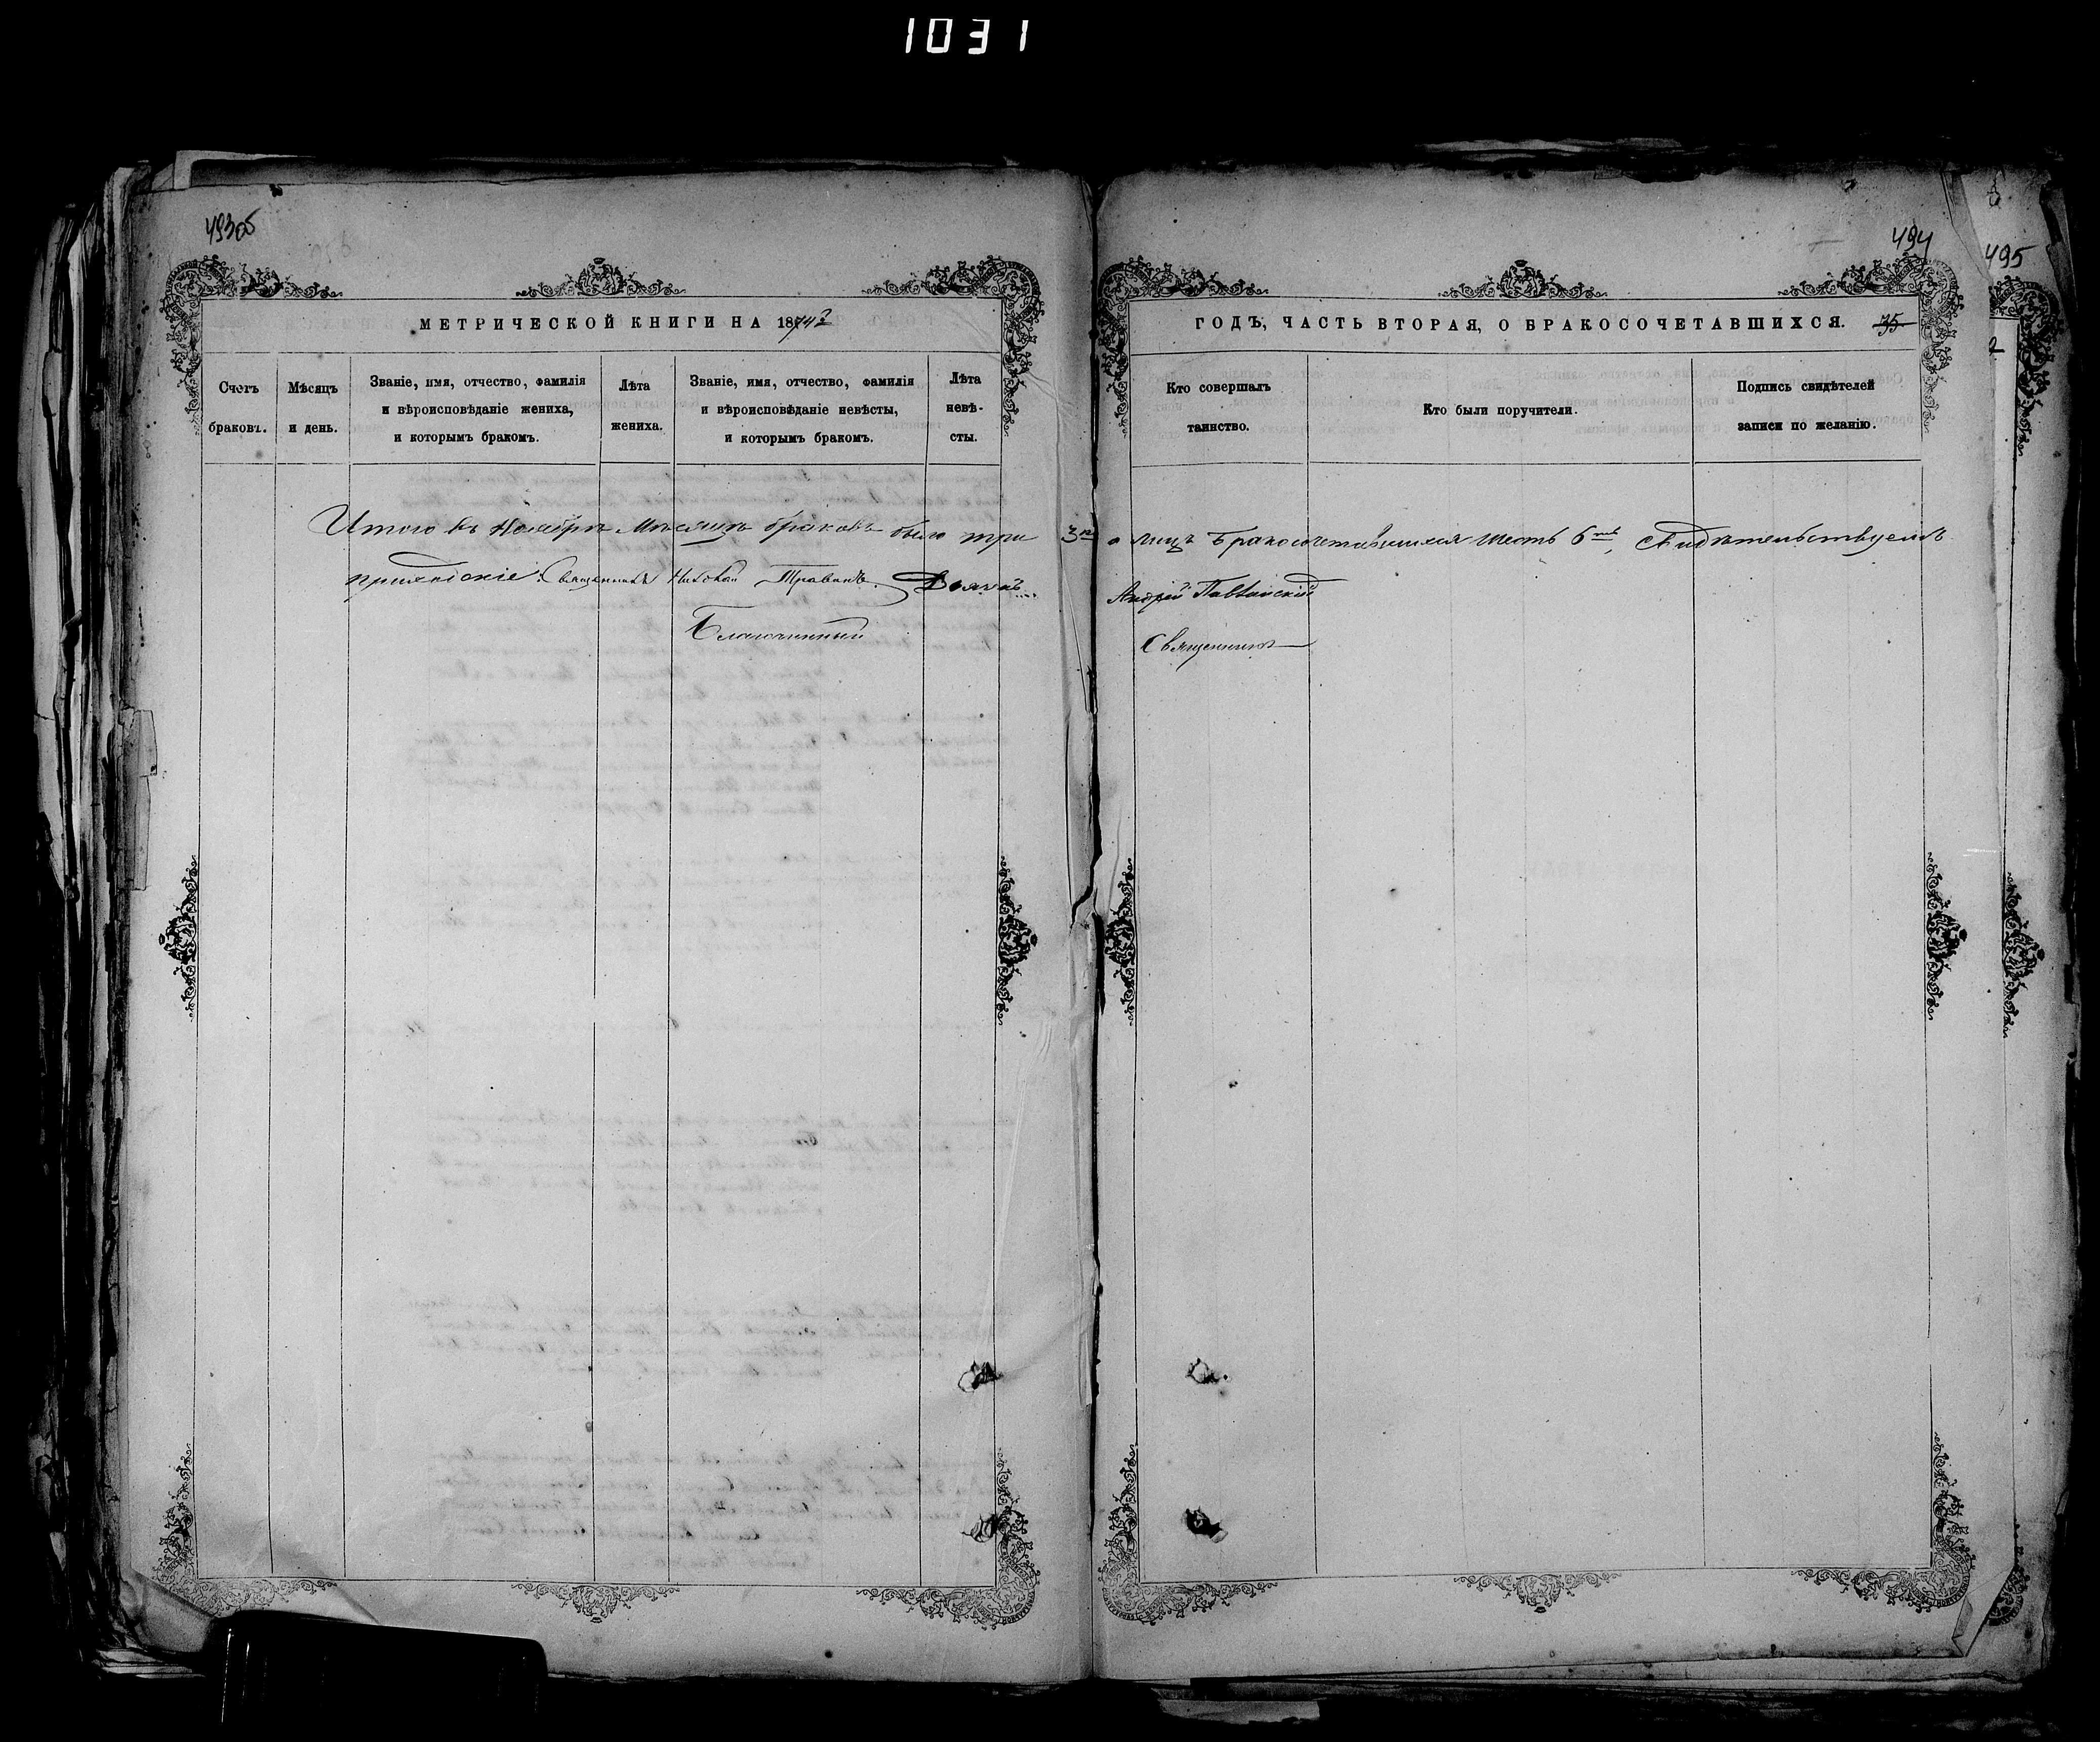 1031
493об
494
495
МЕТРИЧЕСКОЙ КНИГИ НА 187
ГОДЪ, ЧАСТЬ ВТОРАЯ, О БРАКОСОЧЕТАВШИХСЯ. 35
Счетъ браковъ.
Мѣсяцъ и день.
Званіе, имя, отчество, фамилія и вѣроисповѣданіе жениха, и которымъ бракомъ.
Лѣта жениха.
Званіе, имя, отчество, фамилія и вѣроисповѣданіе невѣсты, и которымъ бракомъ.
Лѣта невѣсты.
Кто совершалъ таинство.
Кто были поручители.
Подпись свидѣтелей записи по желанію.
Итого въ Ноябрѣ Мѣсяцѣ браковъ было три 3 а лицъ бракосочетавшихся шесть 6 Свидѣтельствуемъ
Священникъ Николай Андрей
Благочинный Священникъ